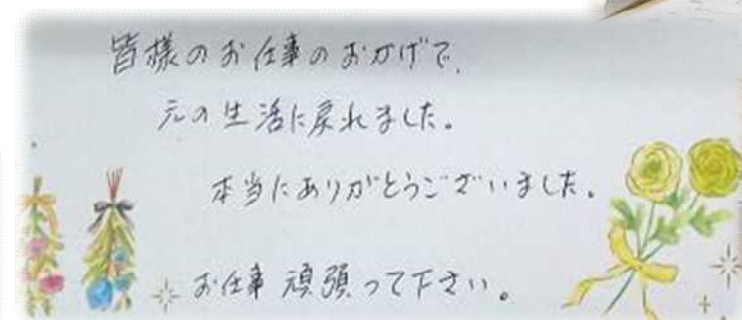 皆様のお仕事のおかげで、
元の生活に戻れました。
本当にありがとうございました。
お仕事 頑張って下さい。